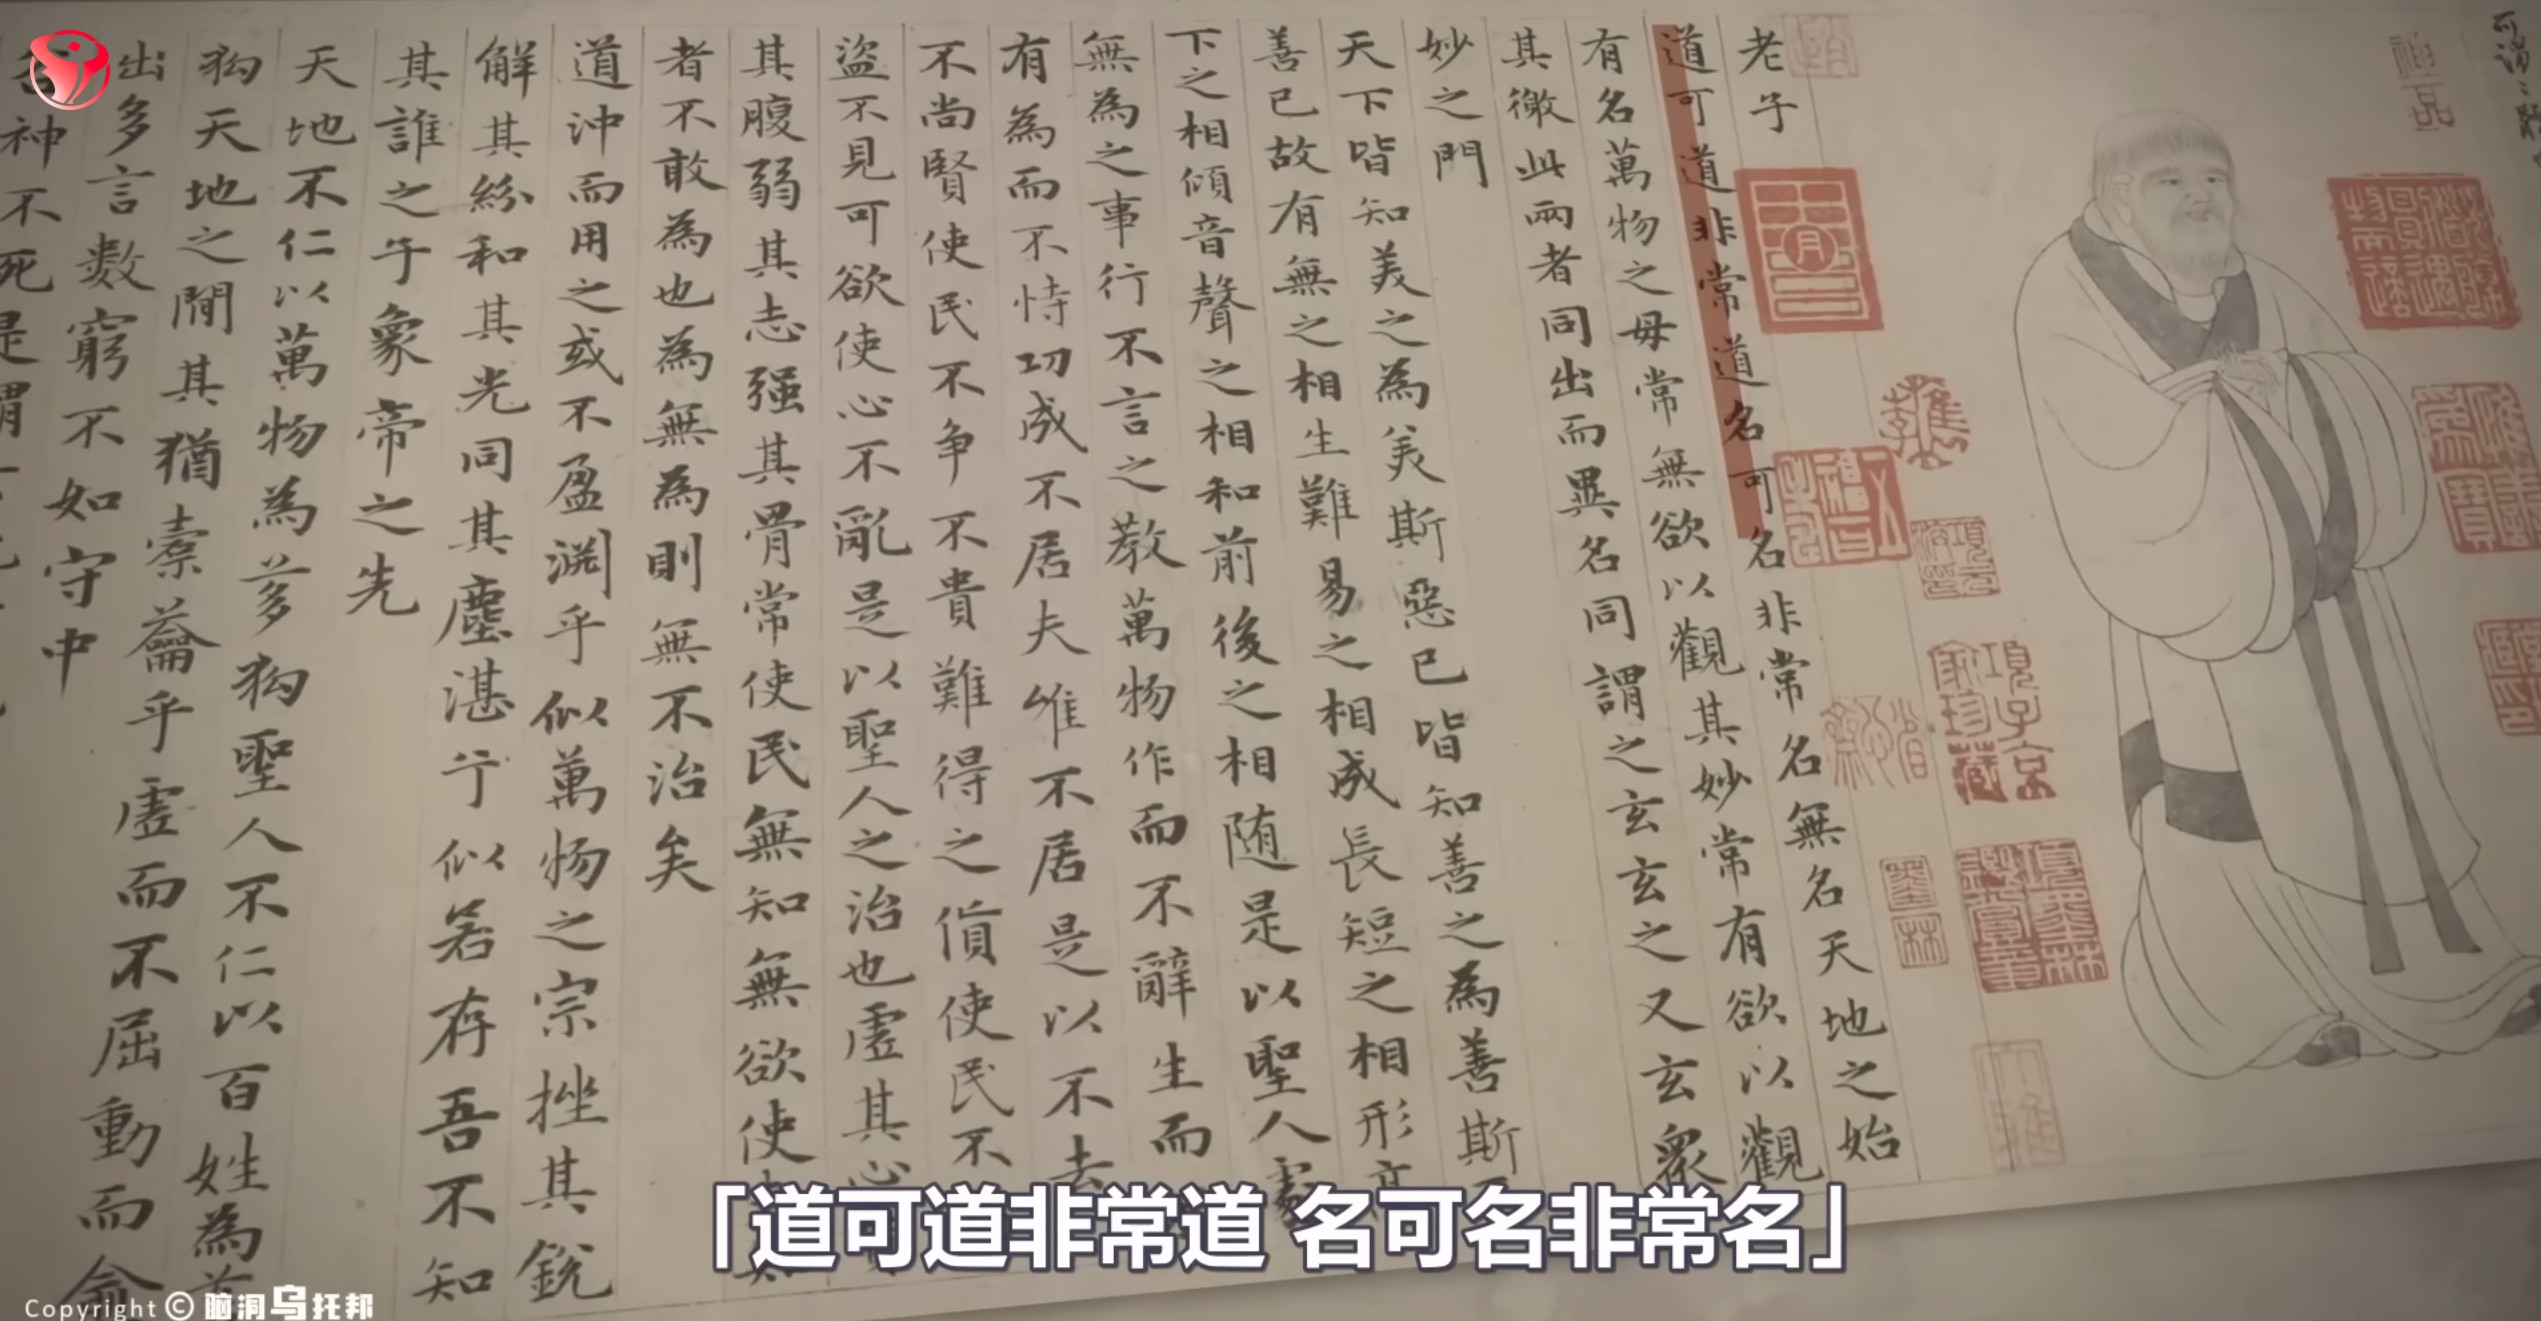 老子
道可道非常道名可名非常名無名天地之始
有名萬物之母常無欲以觀其妙常有欲以觀
其徼此兩者同出而異名同謂之玄玄之又玄眾
妙之門
天下皆知美之為美斯惡已皆知善之為善斯
善已故有無之相生難易之相成長短之相形高
下之相傾音聲之相和前後之相随是以聖人處
無為之事行不言之教萬物作而不辭生而
有為而不恃功成不居夫惟不居是以不去
不尚賢使民不争不貴難得之貨使民不
盜不見可欲使心不亂是以聖人之治也虛其心
其腹弱其志强其骨常使民無知無欲使
者不敢為也為無為則無不治矣
道沖而用之或不盈淵乎似萬物之宗挫其銳
解其紛和其光同其塵湛兮似若存吾不知
其誰之子象帝之先
天地不仁以萬物為芻狗聖人不仁以百姓為芻
狗天地之間其猶橐籥乎虛而不屈動而俞
出多言數窮不如守中
谷神不死是謂
項子京家珍藏
「道可道非常道 名可名非常名」
Copyright © 脑洞乌托邦